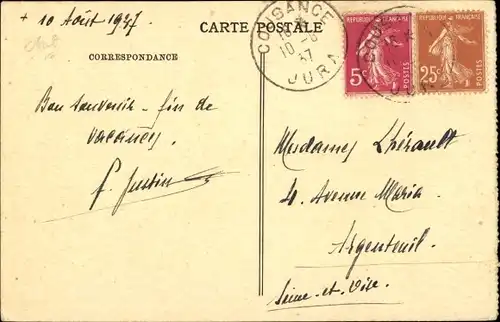 + 10 Août 1937
CARTE POSTALE
CORRESPONDANCE
Bon souvenir - fin de
vacances
F. Justin
COUSANCE
10 -8
37
JURA
RÉPUBLIQUE FRANÇAISE
5c
POSTES
RÉPUBLIQUE FRANÇAISE
25c
POSTES
Mesdames Lhérault
4. Avenue Maria
Argenteuil.
Seine-et-Oise.